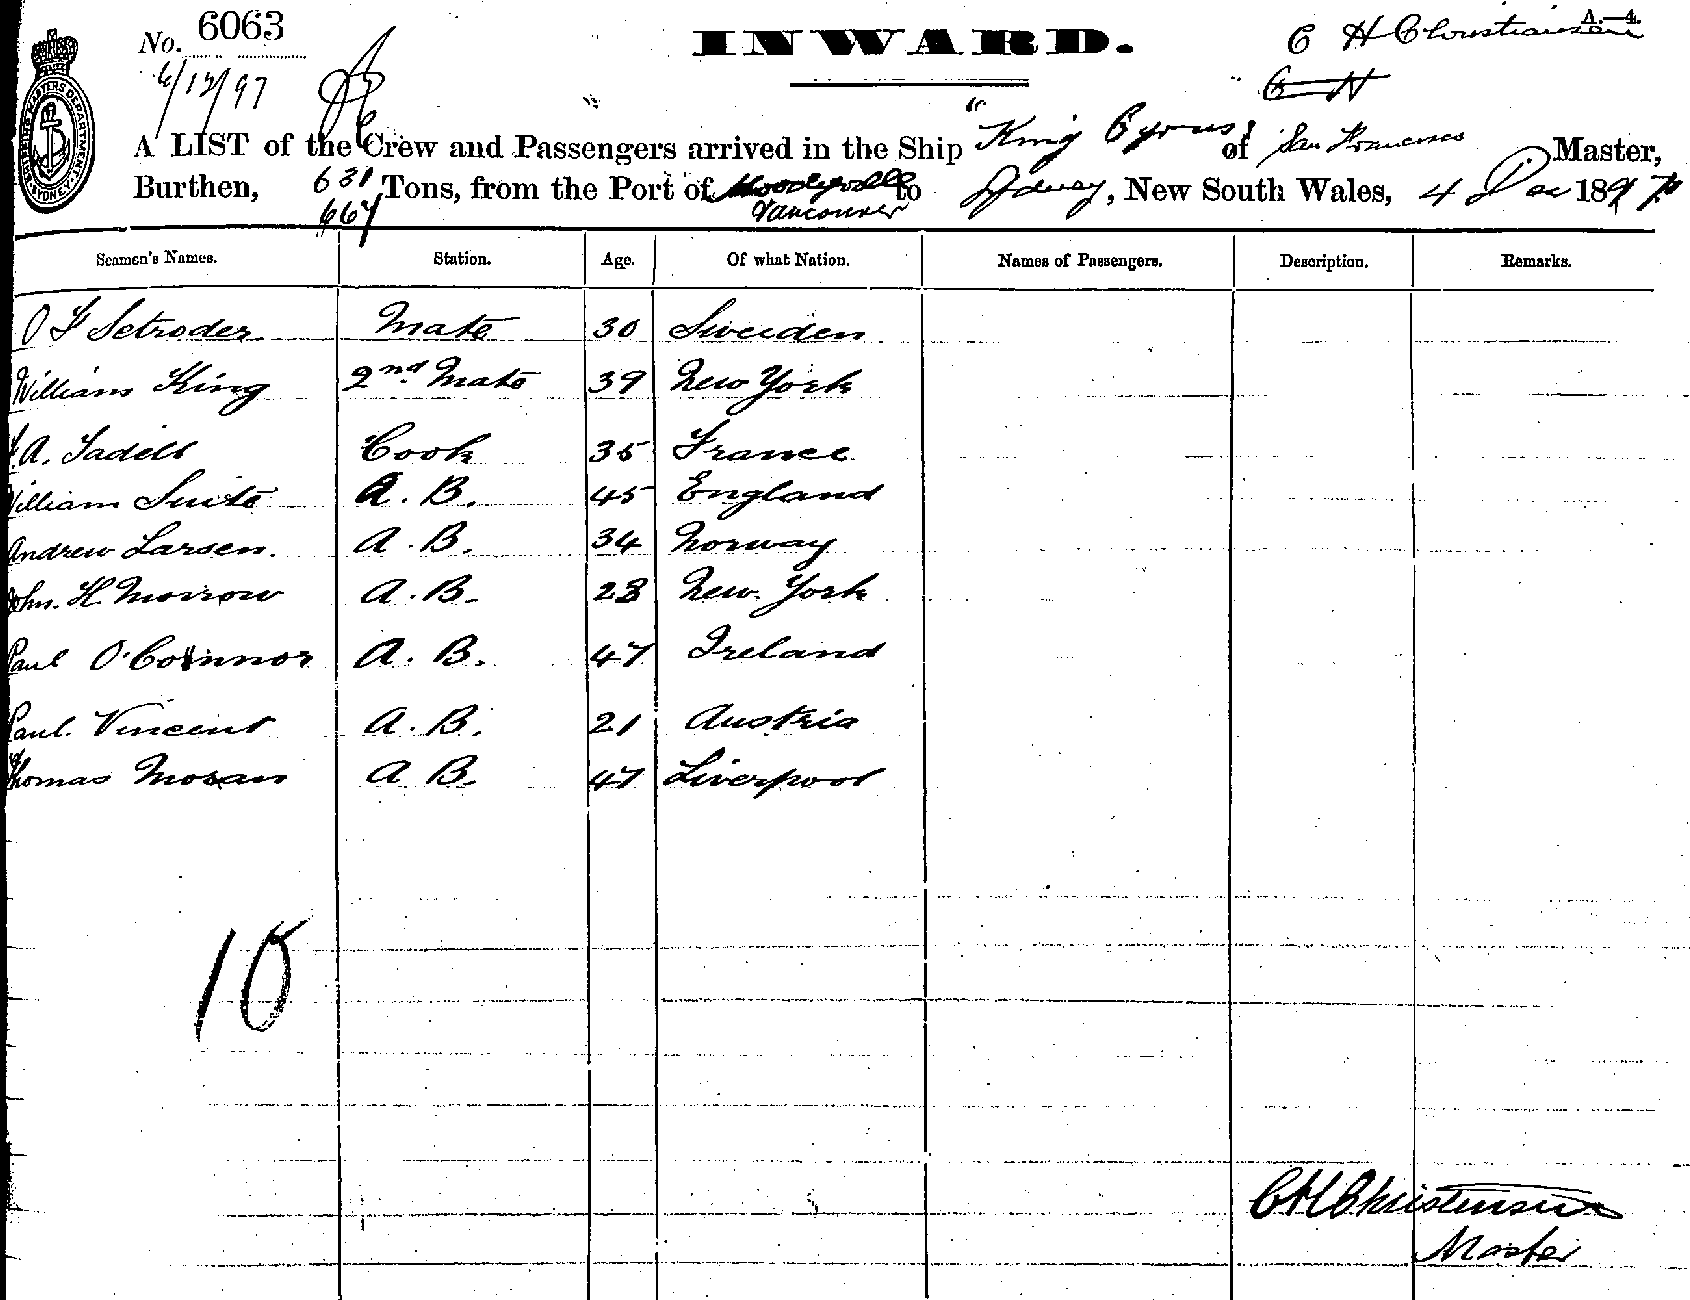 A.—4.
No. 6063
INWARD.
C H Christiansen
6/12/97
C H
A LIST of the Crew and Passengers arrived in the Ship "King Cyrus" of San Francisco Master,
Burthen, 631 Tons, from the Port of Moodyville to Sydney, New South Wales, 4 Dec 1897
667 Vancouver
Seamen's Names. Station. Age. Of what Nation. Names of Passengers. Description. Remarks.
O F Setroder Mate 30 Sweeden
William King 2nd Mate 39 New York
A. Sadell Cook 35 France
William Suite A. B. 45 England
Andrew Larsen. A. B. 34 Norway
John. H. Morrow A. B. 28 New York
Paul O'Connor A. B. 47 Ireland
Paul. Vincent A. B. 21 Austria
Thomas Moran A B. 47 Liverpool
10
C H Christensen
Master